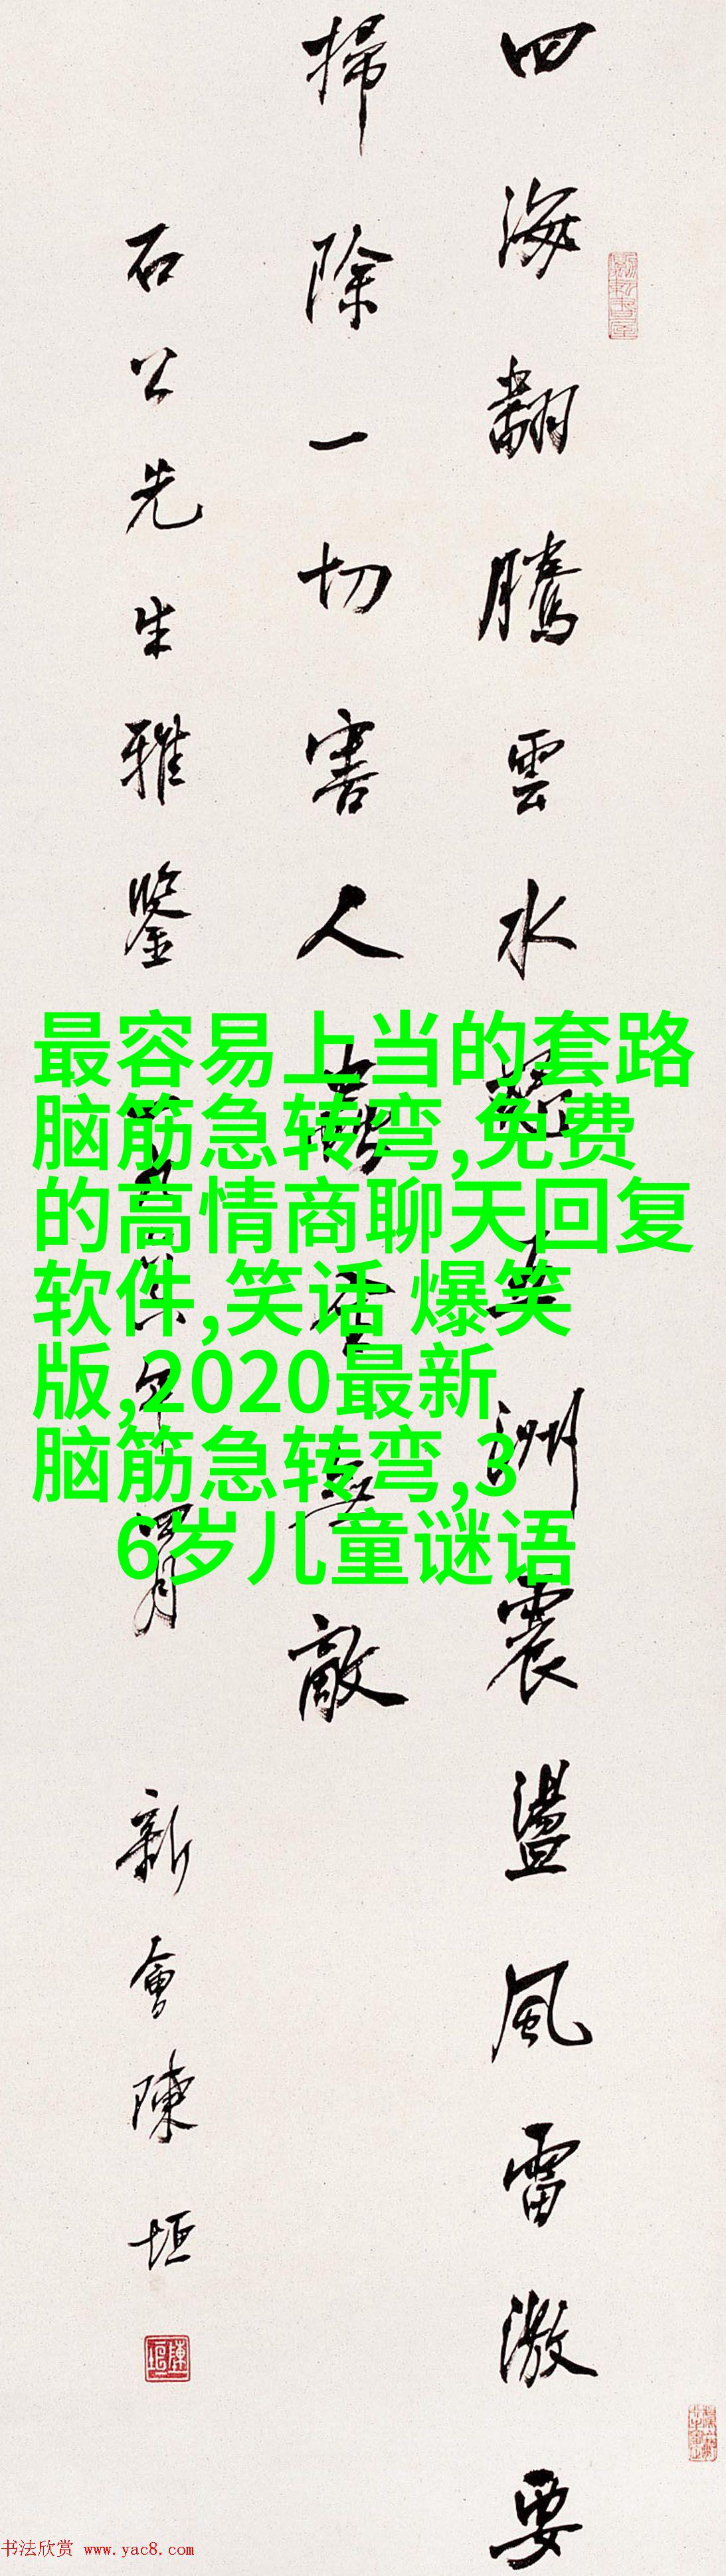 四海翻騰雲水怒五洲震盪風雷激要
掃除一切害人蟲全無敵
石公先生雅鑒
年清
新會陳垣
最容易上当的套路
脑筋急转弯,免费
的高情商聊天回复
软件,笑话 爆笑
版,2020最新
脑筋急转弯,3
6岁儿童谜语
陳垣
书法欣赏 www.yac8.com